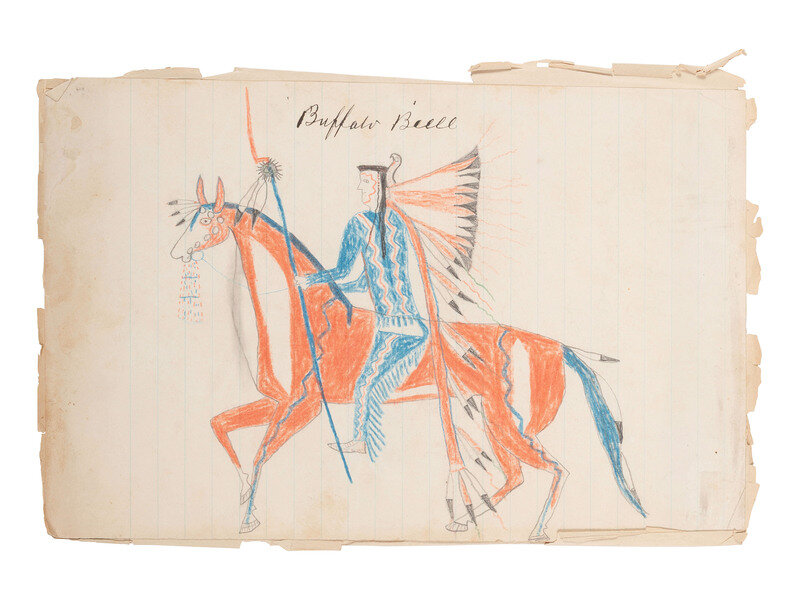 Buffalo Bull